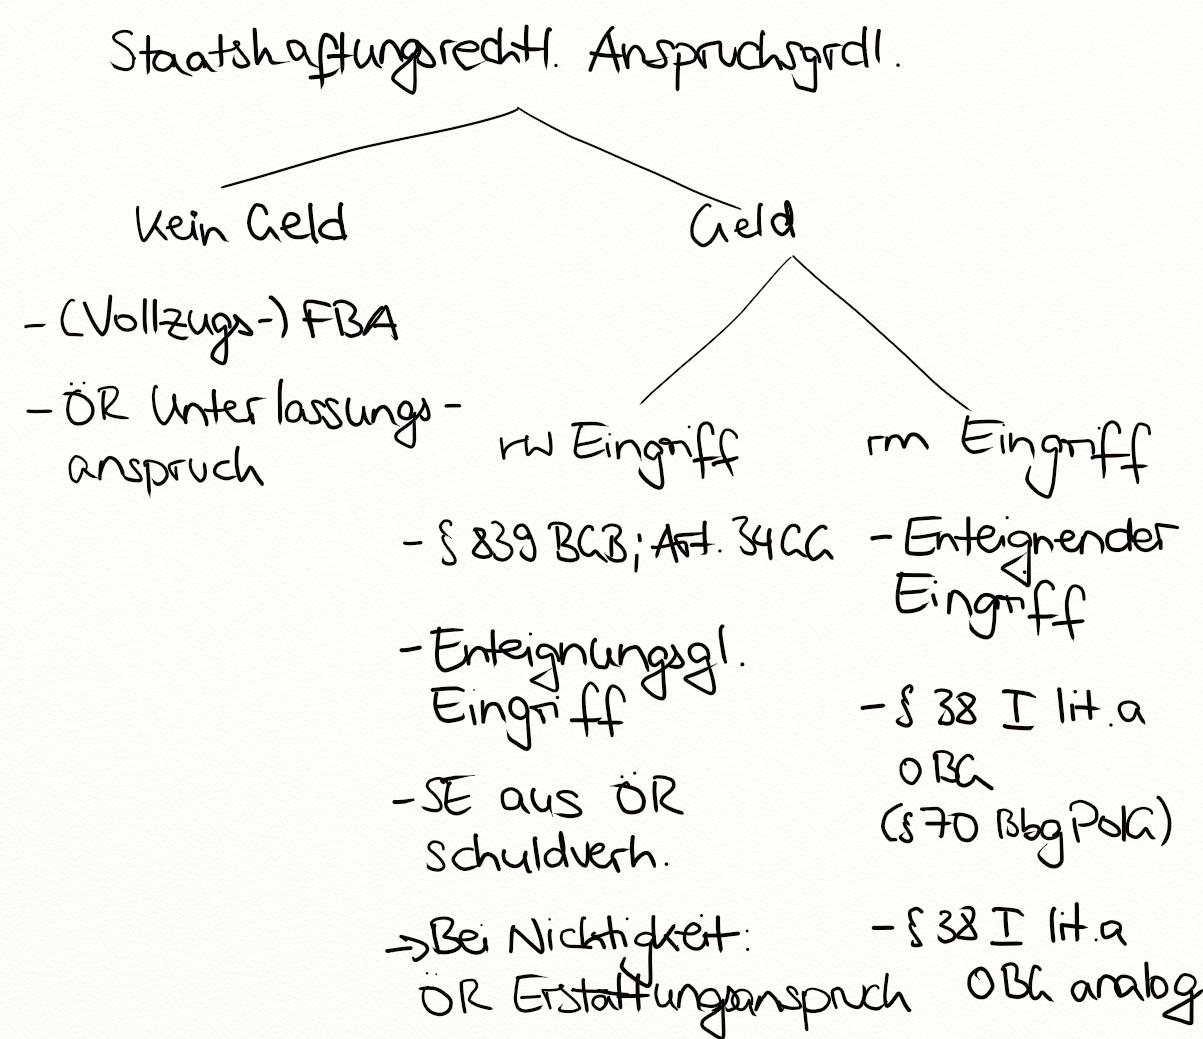 Staatshaftungsrechtl. Anspruchsgrdl.
Kein Geld
- (Vollzugs-) FBA
- ÖR Unterlassungs-
anspruch
Geld
rw Eingriff
- § 839 BGB; Art. 34 GG
- Enteignungsgl.
Eingriff
- SE aus ÖR
Schuldverh.
→ Bei Nichtigkeit:
ÖR Erstattungsanspruch
rm Eingriff
- Enteignender
Eingriff
- § 38 I lit. a
OBG
(§ 70 BbgPolG)
- § 38 I lit. a
OBG analog